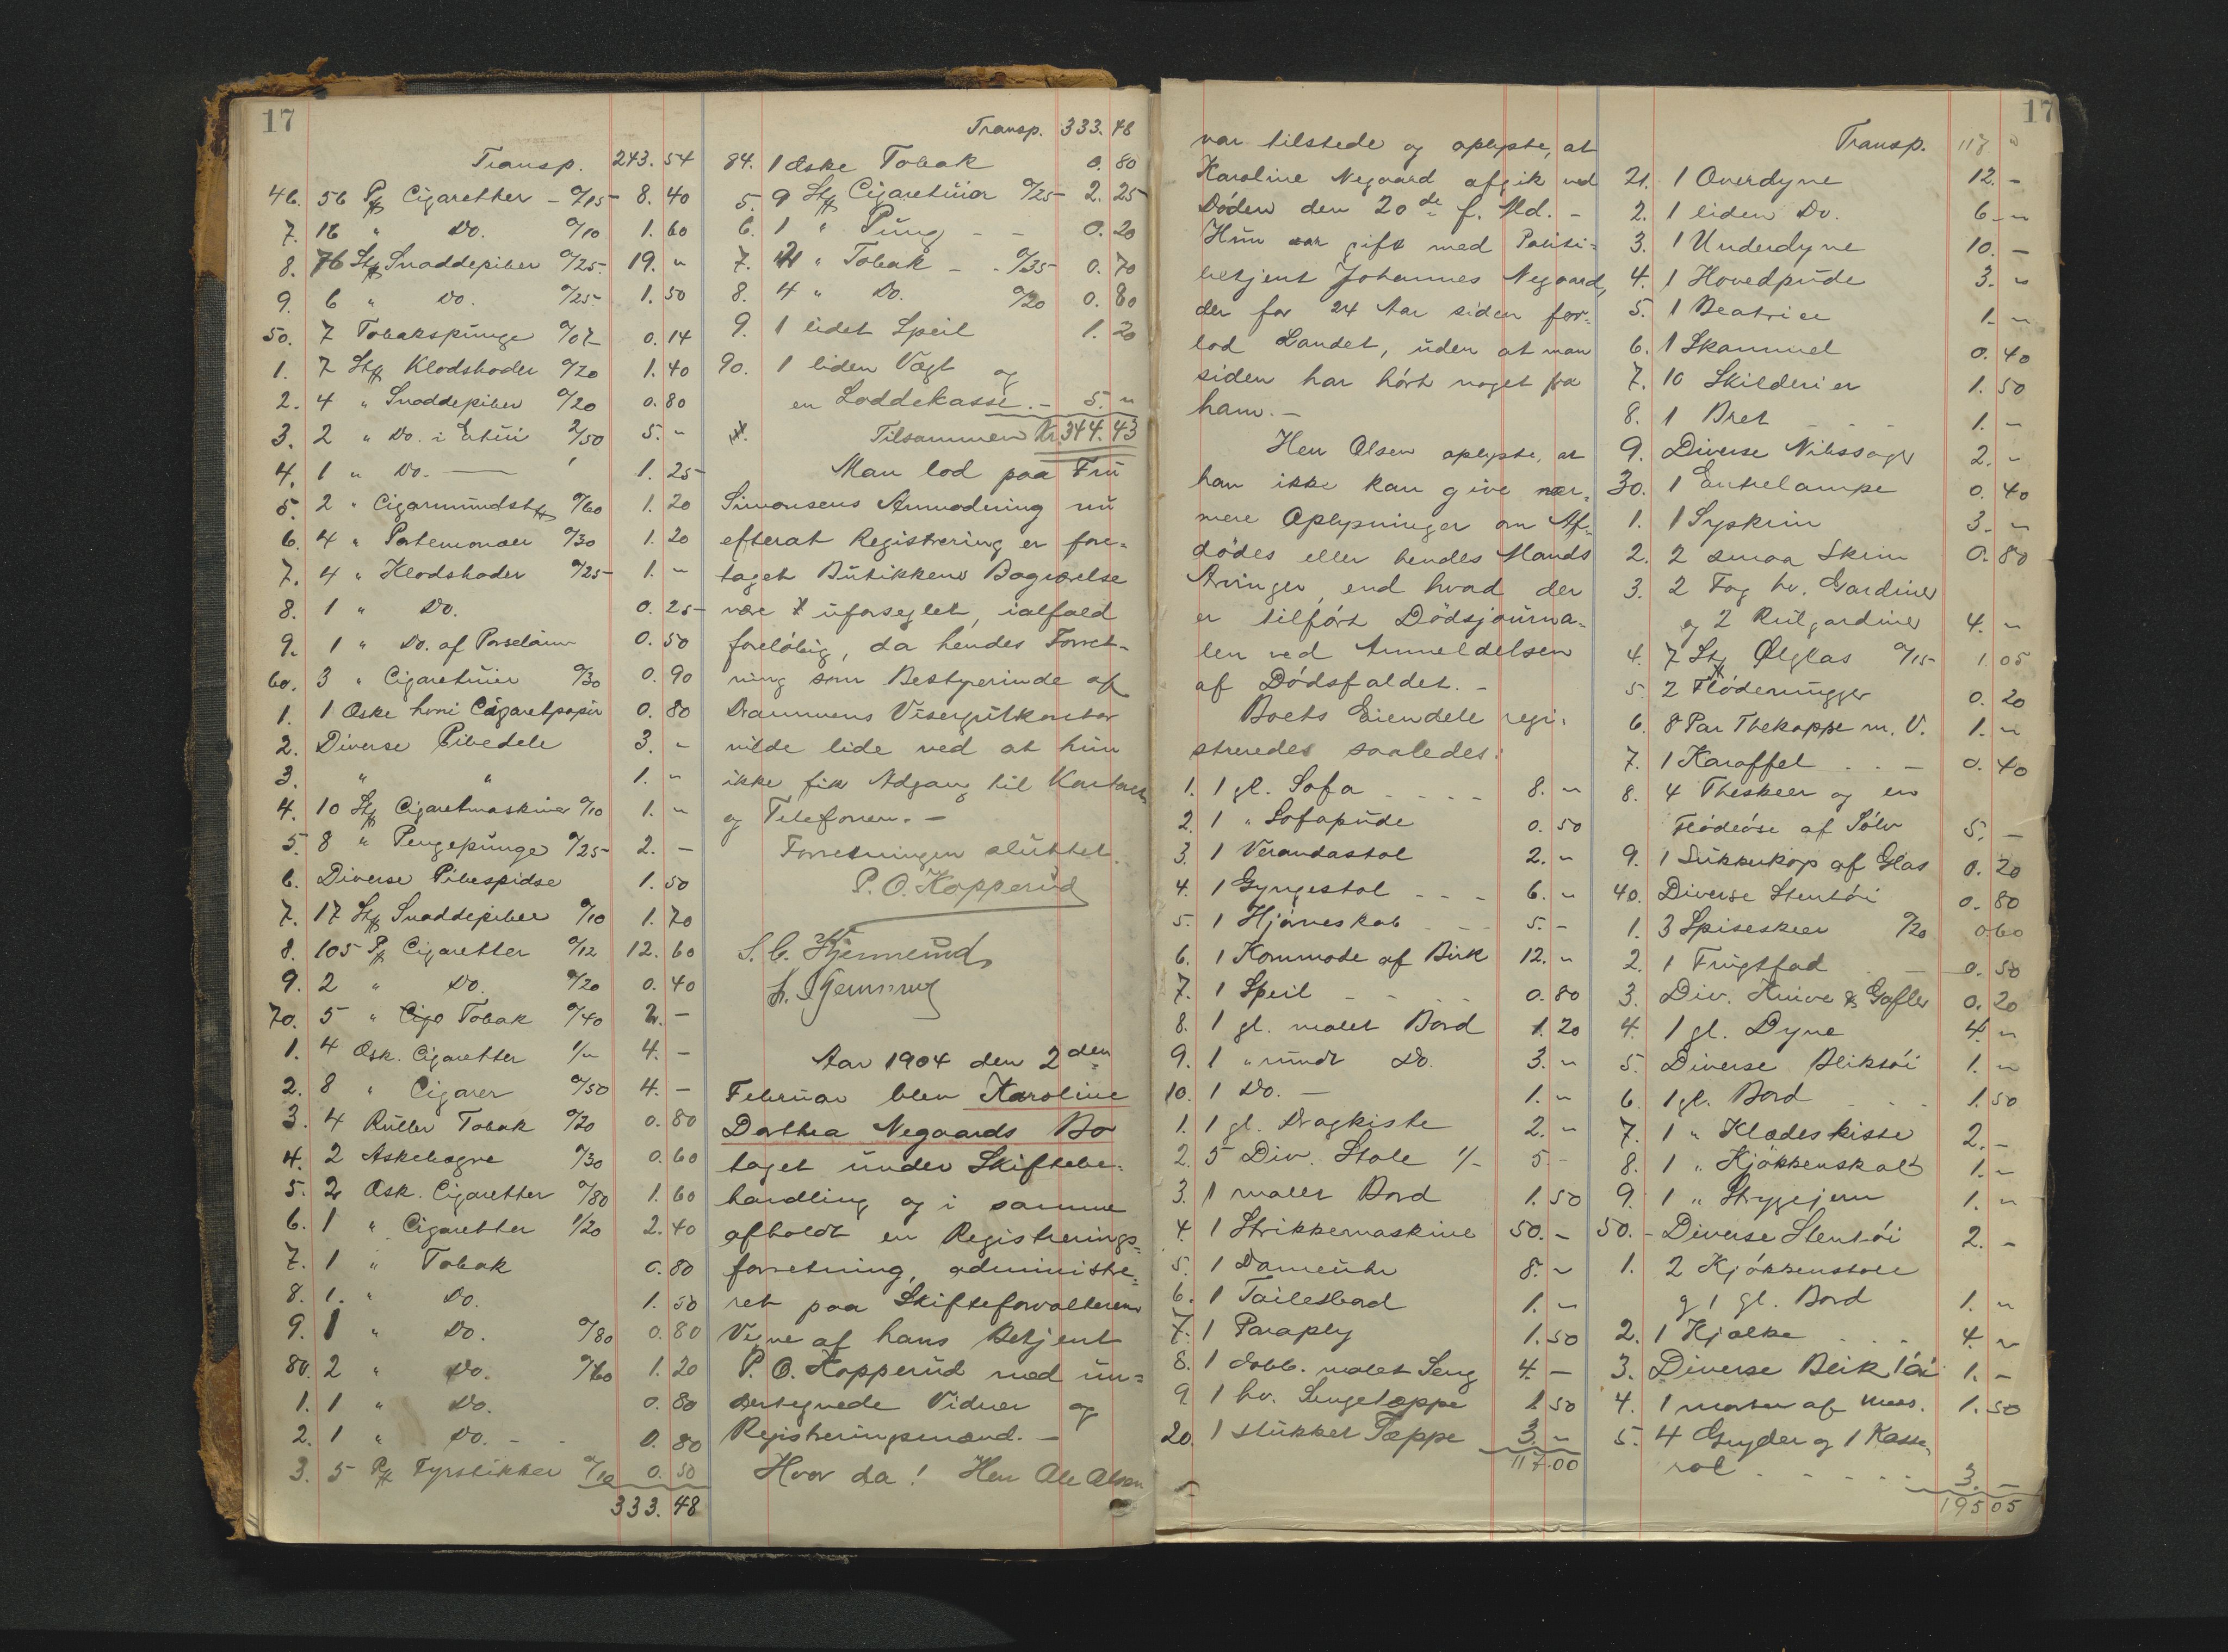 17
Transp. 243.54
46. 56 Pk Cigaretter - 0/15 8.40
7. 16 " Do. 0/10 1.60
8. 76 Stk Snaddepiber 0/25. 19. "
9. 6 " Do. 0/25 1.50
50. 7 Tobakspunge 0/02 0.14
1. 7 Stk Klodshoder 0/20 1.40
2. 4 " Snaddepiber 0/20 0.80
3. 2 " Do. i Etui 2/50 5. "
4. 1 " Do. — 1.25
5. 2 " Cigarmundstk 0/60 1.20
6. 4 " Portemonæer 0/30 1.20
7. 4 " Klodshoder 0/25 1. "
8. 1 " Do. 0.25
9. 1 " Do. af Porselæn 0.50
60. 3 " Cigaretuier 0/30 0.90
1. 1 Æske hvori Cigaretpapir 0.80
2. Diverse Pibedele 3. -
3. " " 1. "
4. 10 Stk Cigaretmaskiner 0/10 1. "
5. 8 " Pengepunge 0/25 2. -
6. Diverse Pibespidse 1.50
7. 17 Stk Snaddepiber 0/10 1.70
8. 105 Pk Cigaretter 0/12 12.60
9. 2 " Do. 0/20 0.40
70. 5 " Tobak 0/40 2. -
1. 4 Æsk. Cigaretter 1/" 4. -
2. 8 " Cigarer 0/50 4. -
3. 4 Ruller Tobak 0/20 0.80
4. 2 Askebægre 0/30 0.60
5. 2 Æsk. Cigaretter 0/80 1.60
6. 1 " Cigaretter 1/20 2.40
7. 1 " Tobak 0.80
8. 1. " Do. 1.50
9. 1 " Do. 0/80 0.80
80. 2 " Do. 0/60 1.20
1. 1 " Do. 0.80
2. 1 " Do. - - 0.80
3. 5 Pk Fyrstikker 0/10 0.50
333.48
Transp. 333.48
84. 1 Æske Tobak 0.80
5. 9 Stk Cigaretuier 0/25 2.25
6. 1 " Pung - - 0.20
7. 2 " Tobak - - 0/35 0.70
8. 4 " Do. 0/20 0.80
9. 1 lidet Speil 1.20
90. 1 liden Vægt og
en Loddekasse. - 5. "
Tilsammen Kr. 344.43
Man lod paa Fru
Simonsens Anmodning nu
efterat Registrering er fore-
taget Butikkens Bagværelse
være uforseglet, ialfald
foreløbig, da hendes Forret-
ning som Bestyrerinde af
Drammens Visergutkontor
vilde lide ved at hun
ikke fik Adgang til Kontoret
og Telefonen. -
Forretningen sluttet.
P. O. Kopperud
Aar 1904 den 2den
Februar blev Karoline
Dorthea Negaards Bo
taget under Skiftebe-
handling og i samme
afholdt en Registrerings-
forretning, administre-
ret paa Skifteforvalterens
Vegne af hans Betjent
P. O. Kopperud med un-
dertegnede Vidner og
Registreringsmænd. -
Hvor da! Herr Ole Olsen
17
var tilstede og oplyste, at
Karoline Negaard afgik ved
Døden den 20de f. Md. -
Hun var gift med Politi-
betjent Johannes Negaard,
der for 24 Aar siden for-
lod Landet, uden at man
siden har hørt noget fra
ham. -
Herr Olsen oplyste, at
han ikke kan give nær-
mere Oplysninger om Af-
dødes eller hendes Mands
Arvinger, end hvad der
er tilført Dødsjourna-
len ved Anmeldelsen
af Dødsfaldet. -
Boets Eiendele regi-
streredes saaledes:
1. 1 gl. Sofa - - - - 8. "
2. 1 " Sofapude 0.50
3. 1 Verandastol 2. "
4. 1 Gyngestol - - - 6. "
5. 1 Hjørneskab - - - 5. -
6. 1 Kommode af Birk 12. "
7. 1 Speil - - - - 0.80
8. 1 gl. malet Bord 1.20
9. 1 " rundt Do. 3. "
10. 1 Do. - 1. "
1. 1 gl. Dragkiste 2. "
2. 5 Div. Stole 1/- 5. -
3. 1 malet Bord 1.50
4. 1 Strikkemaskine 50. -
5. 1 Dameuhr 8. "
6. 1 Toiletbord 1. "
7. 1 Paraply 1.50
8. 1 dobb. malet Seng 4. -
9 1 hv. Sengetæppe 1.50
20. 1 stukket Tæppe 3. "
117.00
Transp. 117 "
21. 1 Overdyne 12. -
2. 1 liden Do. 6. "
3. 1 Underdyne 10. -
4. 1 Hovedpude 3. "
5. 1 Beatrice 1. "
6. 1 Skammel 0.40
7. 10 Skilderier 1.50
8. 1 Bret - - - 1. "
9. Diverse Nipssager 2. "
30. 1 Entrelampe 0.40
1. 1 Syskrin 3. "
2. 2 smaa Skrin 0.80
3. 2 Fag hv. Gardiner
og 2 Rulgardiner 4. "
4. 7 Stk Ølglas 0/15 1.05
5. 2 Flødemugger 0.20
6. 8 Par Thekoppe m. V. 1. "
7. 1 Karaffel - - - 0.40
8. 4 Theskeer og en
Flødeøse af Sølv 5. -
9. 1 Sukkerkop af Glas 0.20
40. Diverse Stentøi 0.80
1. 3 Spiseskeer 0/20 0.60
2. 1 Frugtfad - 0.50
3. Div. Knive & Gafler 0.20
4. 1 gl. Dyne 4. "
5. Diverse Bliktøi 1. "
6. 1 gl. Bord - - - 1.50
7. 1 " Klædeskiste 2. -
8. 1 " Kjøkkenskab 1. "
9. 1 " Strygejern 1. "
50. - Diverse Stentøi 2. -
1. 2 Kjøkkenstole
og 1 gl. Bord 1. "
2. 1 Kjælke - - - 4. "
3. Diverse Bliktøi 1. -
4. 1 Morter af Mess. 1.50
5. 4 Gryder og 1 Kasse-
rol - - - - - 3. -
195 05